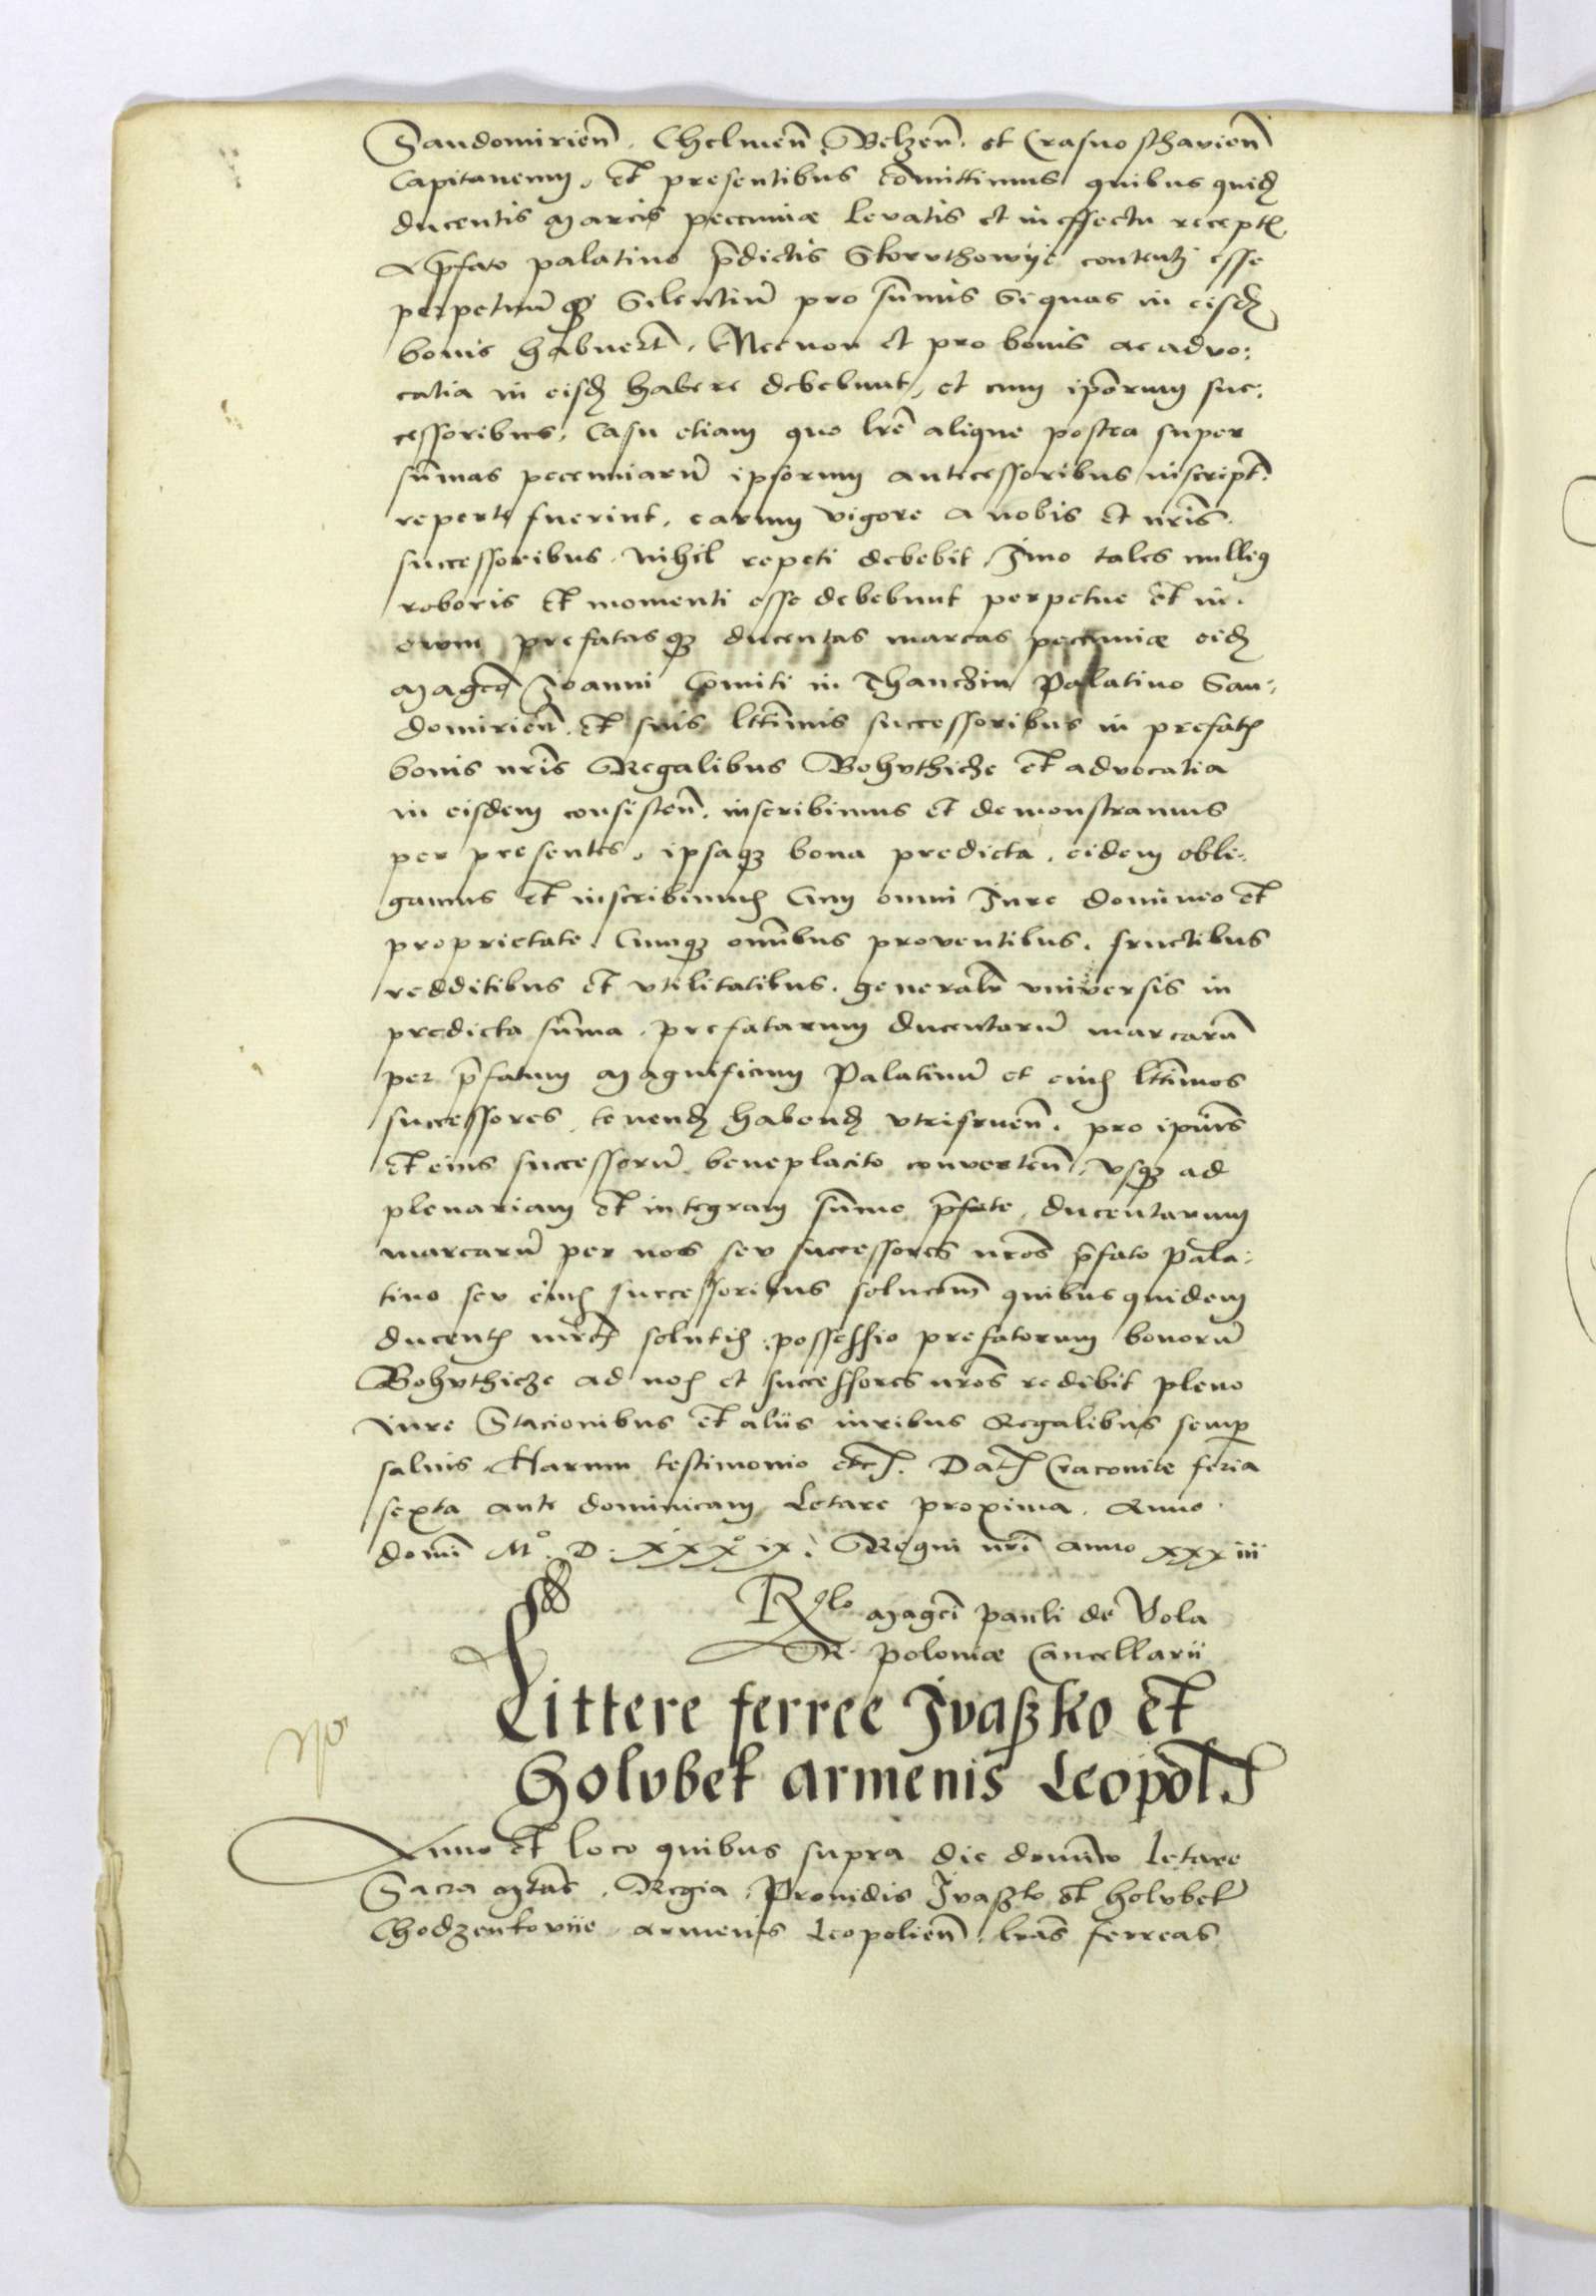 Sandomirien̄. Chelmen̄. Belzen̄. et Crasnosthavien̄
Capitaneum. et presentibus com̄ittimus quibus quidꝫ
ducentis Marcis pecuniæ levatis et in effectu recept̄
A p̄fato palatino p̄dictis Skorvthowije contentj esse
perpetuum̄ qꝫ Silentiū pro sum̄is Si quas in eisdꝫ
bonis habuer̄t. Necnon et pro bonis ac advo:
catia in eisdꝫ habere debebunt, et cum ip̄orum suc:
cessoribus, Casu etiam quo lr̄e alique postea super
sum̄as pecuniarū ipsorum antecessoribus inscript̄
reperte fuerint, earum vigore a nobis et nr̄is
successoribus nihil repeti debebit, Imo tales nulliꝰ
roboris et momenti esse debebunt perpetue et in
evum prefatasqꝫ ducentas marcas pecuniæ eidꝫ
Magcō Joanni Comiti in Thanczin Palatino San:
domirien̄. et suis lt̄timis successoribus in prefatis
bonis nr̄is Regalibus Bohvthicze et advocatia
in eisdem consisten̄. inscribimus et demonstramus
per presentes, ipsaqꝫ bona predicta, eidem obli:
gamus et inscribimus Cum omni Jure dominio et
proprietate. Cumqꝫ omn̄ibus proventibus, fructibus
redditibus et vtilitatibus, general̄r vniversis in
predicta sum̄a, prefatarum ducentarū marcarū
per p̄fatum Magnificum Palatinū et eius lt̄timos
successores, tenendꝫ habendꝫ vtifruen̄. pro ipīus
et eius successorū beneplacito converten̄, vsqꝫ ad
plenariam et integram sum̄e p̄fate, ducentarum
marcarū per nos sev successores nr̄os p̄fato Pala:
tino sev eius successoribus soluc̄onem quibus quidem
ducentis mr̄cis solutis, possessio prefatorum bonorū
Bohvthicze ad nos et successores nr̄os redibit pleno
iure Stacionibus et aliis iuribus Regalibus semꝑ
saluis. Harum testimonio etc. Dat̄ Cracouie feria
sexta ante dominicam Letare proxima. Anno
domī Mº. D. xxxº ix. Regni nr̄i anno xxxiii
Rel̄o Magcī Pauli de Vola
R. Poloniæ Cancellarii
Littere ferree Jvaßko et
Holvbek armenis Leopol̄
Anno et loco quibus supra die domīco Letare
Sacra Mtās. Regia. Prouidis Jvaßko et holvbek
Chodzenkoviie armenis Leopolien̄. lr̄as ferreas